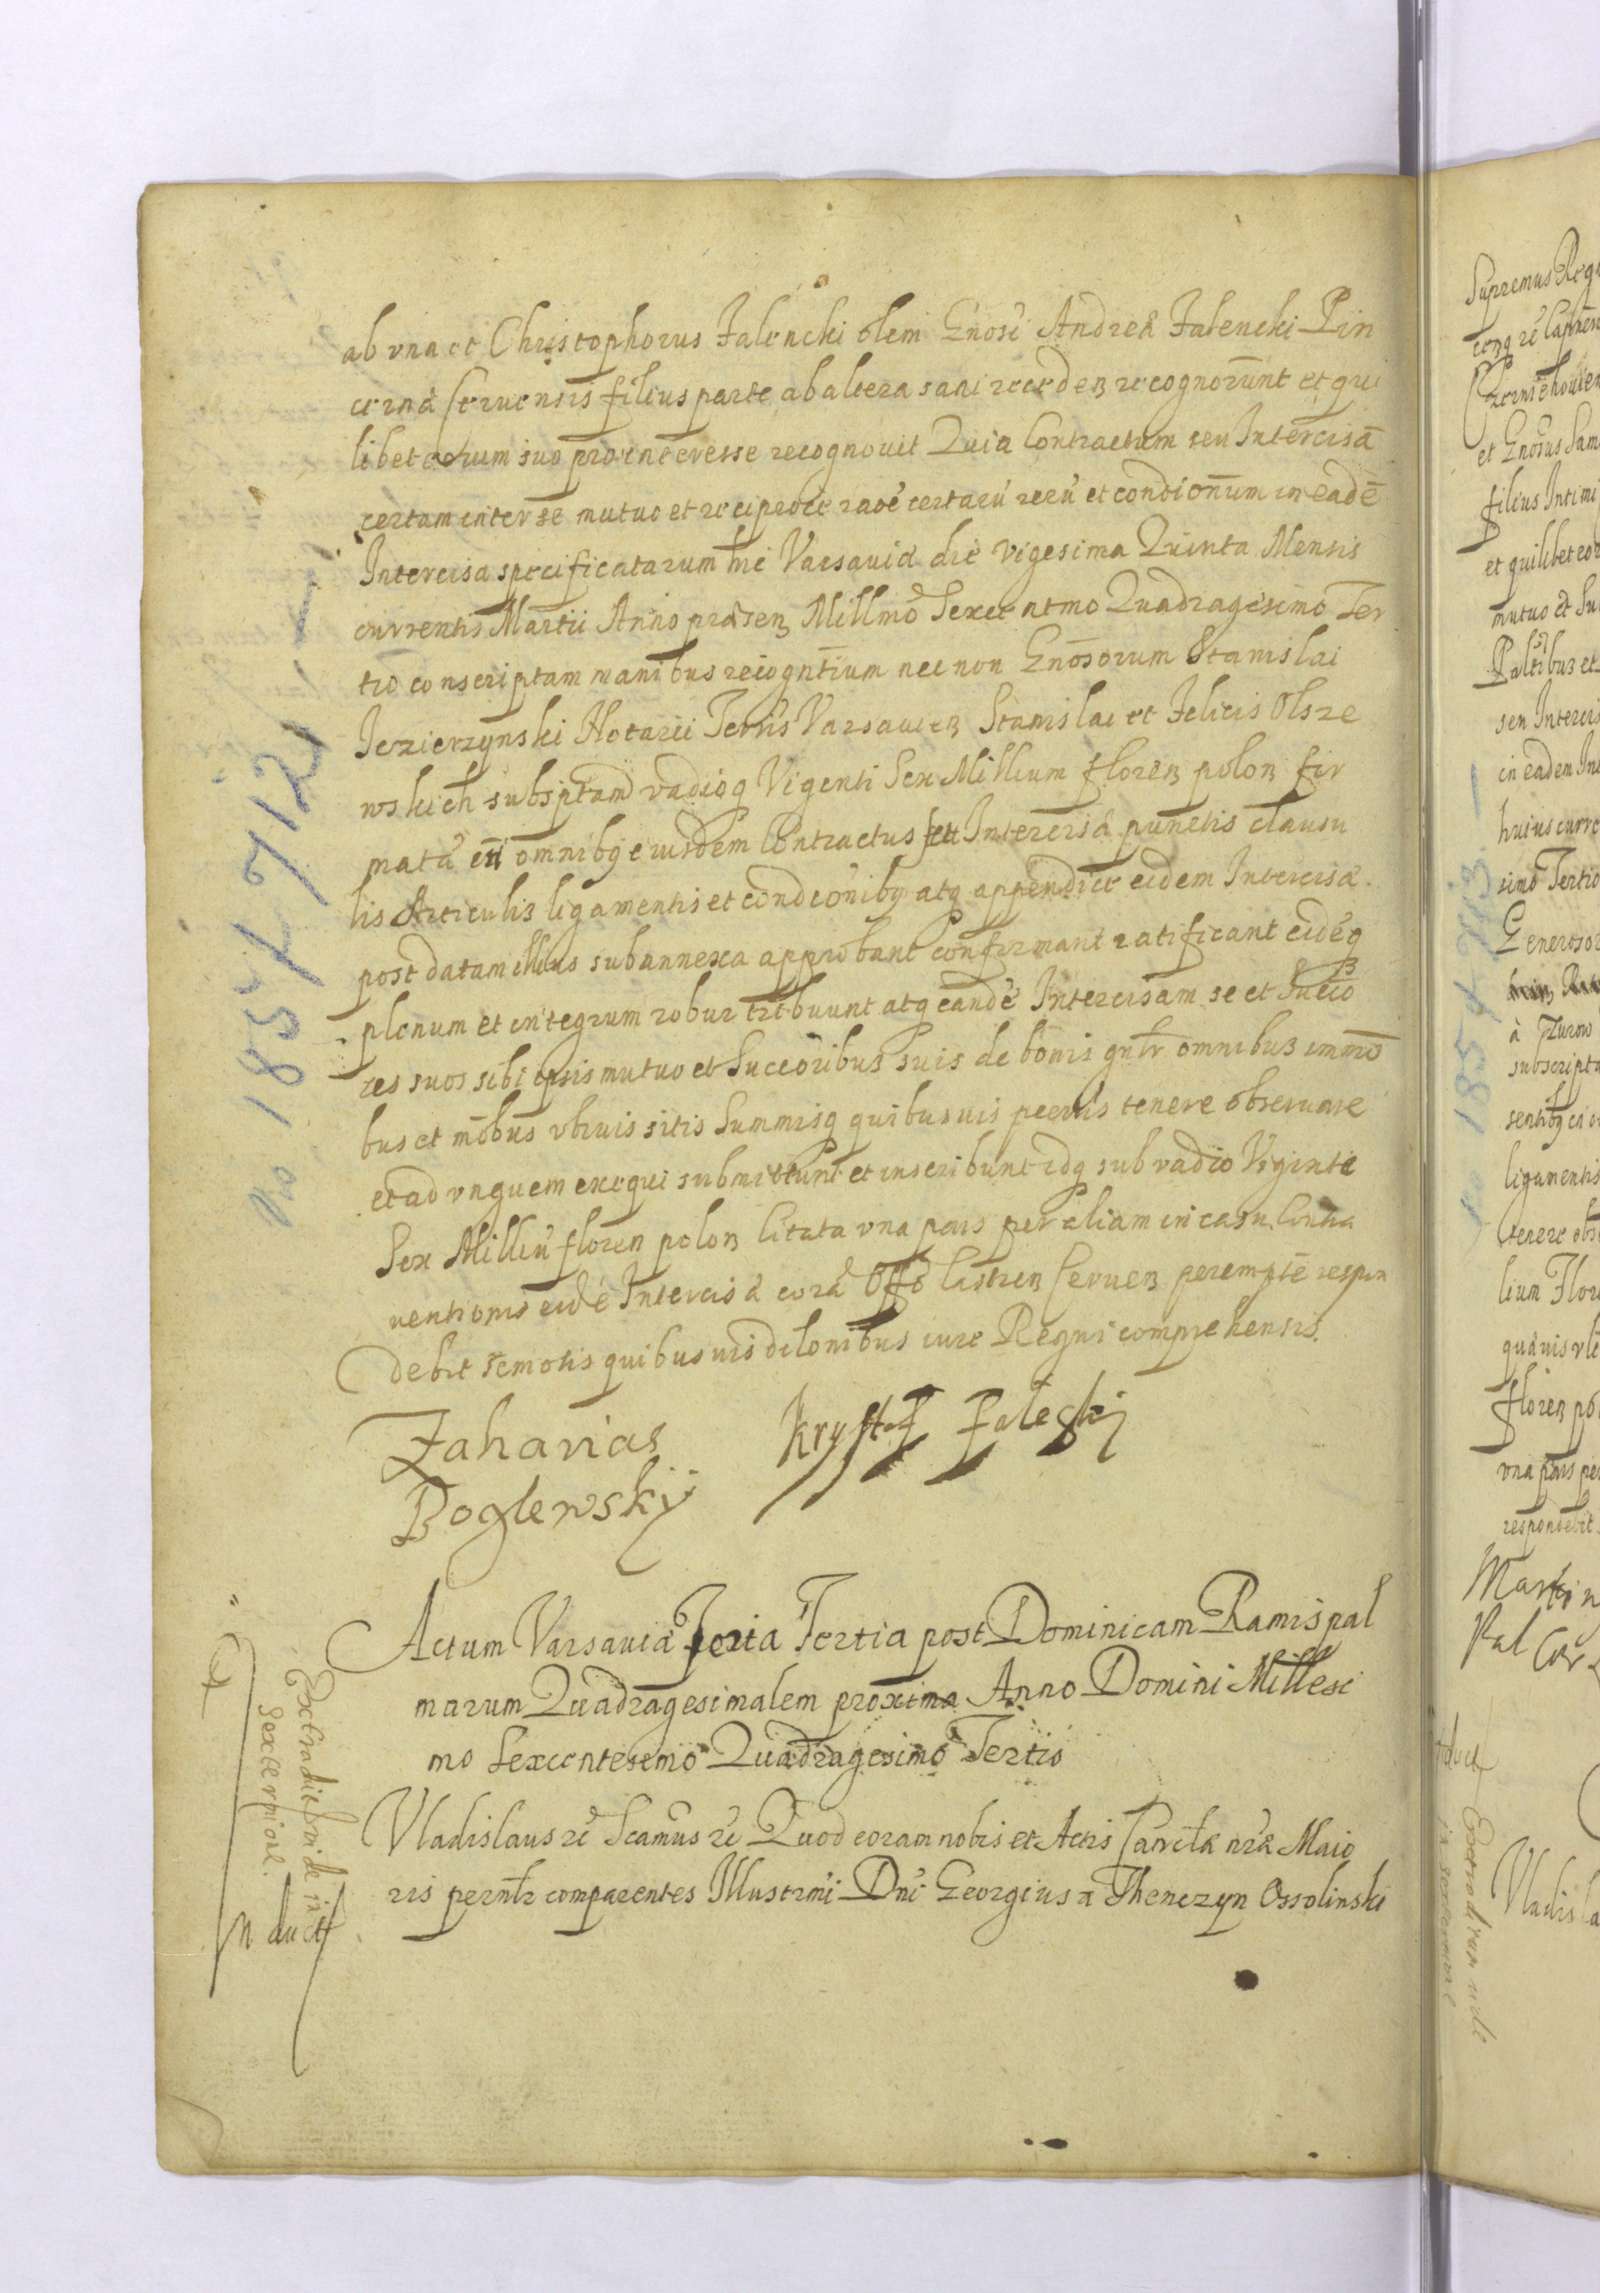 ab vna et Christophorus Falencki olim Gnosi Andreæ Falencki Pin
cernæ Cernensis filius parte ab altera sani recedeƷ recognorunt et qui
libet eorum suo pro interesse recognovit Quia Contractum seu Intercisā
certam inter se mutuo et reciproce raōe certarū rerū et condionum in eadē
Intercisa specificatarum hic Varsauiæ die vigesima Quinta Mensis
currentis Martii Anno præsenƷ Millmo Sexcentmo Quadragesimo Ter
tio conscriptam manibus recogntium nec non Gnosorum Stanislai
Jezierzynski Notarii Terris VarsauienƷ Stanislai et Felicis Olsze
wskich subsptam vadioq Viginti Sex Millium florenƷ polonƷ fir
matā in omnibq eiusdem Contractus seu Intercisæ punctis clausu
lis Articulis ligamentis et condeonibq atq appendice eidem Intercisæ
post datam illius subannexa approbant confirmant ratificant eidēq
plenum et integrum robur tribuunt atq eandē Intercisam se et Succō
res suos sibi ipsis mutuo et Succoribus suis de bonis gnlr omnibus immō
bus et mōbus vbiuis sitis Summisq quibusuis pecriis tenere obseruare
et ad vnguem exequi submittunt et inscribunt idq sub vadio Viginti
Sex Milliū floren polonƷ Citata vna pars per aliam in casu Contra
uentionis eidē Intercisæ corā Offo CastrenƷ CernenƷ peremptē respon
debit remotis quibusuis dilonibus iure Regni comprehensis.
Zaharias
Boglewskij
Krysztof Faleçki
Actum Varsauiæ Feria Tertia post Dominicam Ramispal
marum Quadragesimalem proxima Anno Domini Millesi
mo Sexcentesimo Quadragesimo Tertio
Vladislaus rē Scamus rē Quod coram nobis et Actis Cancllæ nræ Maio
ris pernlr comparentes Illustrmi Dni Georgius a Thenczyn Ossolinski
Induct
No 185 k 712
Supremus Regn
et Gnosus Sam
filius Intimi
et quilibet eor
mutuo et Su
seu Intercis
in eadem Int
huius curre
simo Tertio
Generosor
à Zurow
subscripta
ligamentis
tenere obs
lium Flor
quāuis vlt
florenƷ po
vna pars per
respondebit
Martin
Vladisla